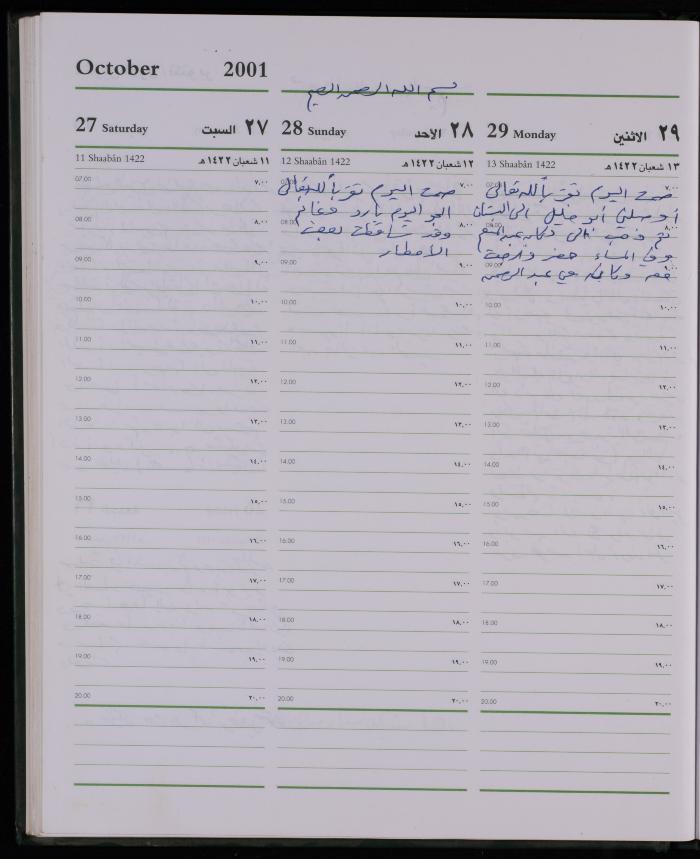 October 2001
بسم الله الرحمن الرحيم
27 Saturday السبت ٢٧
11 Shaabân 1422 ١١ شعبان ١٤٢٢هـ
07.00 ٧,٠٠
08.00 ٨,٠٠
09.00 ٩,٠٠
10.00 ١٠,٠٠
11.00 ١١,٠٠
12.00 ١٢,٠٠
13.00 ١٣,٠٠
14.00 ١٤,٠٠
15.00 ١٥,٠٠
16.00 ١٦,٠٠
17.00 ١٧,٠٠
18.00 ١٨,٠٠
19.00 ١٩,٠٠
20.00 ٢٠,٠٠
28 Sunday الاحد ٢٨
12 Shaabân 1422 ١٢ شعبان ١٤٢٢هـ
07.00 ٧,٠٠
صمت اليوم تقرباً لله تعالى
08.00 ٨,٠٠
الجو اليوم بارد وغائم
وقد تساقطت بعض
09.00 ٩,٠٠
الأمطار
10.00 ١٠,٠٠
11.00 ١١,٠٠
12.00 ١٢,٠٠
13.00 ١٣,٠٠
14.00 ١٤,٠٠
15.00 ١٥,٠٠
16.00 ١٦,٠٠
17.00 ١٧,٠٠
18.00 ١٨,٠٠
19.00 ١٩,٠٠
20.00 ٢٠,٠٠
29 Monday الاثنين ٢٩
13 Shaabân 1422 ١٣ شعبان ١٤٢٢هـ
07.00 ٧,٠٠
صمت اليوم تقرباً لله تعالى
أوصلني أبو خليل الى البستان
08.00 ٨,٠٠
ثم ذهب الى دكانه
وفي المساء حضر
09.00 ٩,٠٠
عبد الرحمن
10.00 ١٠,٠٠
11.00 ١١,٠٠
12.00 ١٢,٠٠
13.00 ١٣,٠٠
14.00 ١٤,٠٠
15.00 ١٥,٠٠
16.00 ١٦,٠٠
17.00 ١٧,٠٠
18.00 ١٨,٠٠
19.00 ١٩,٠٠
20.00 ٢٠,٠٠